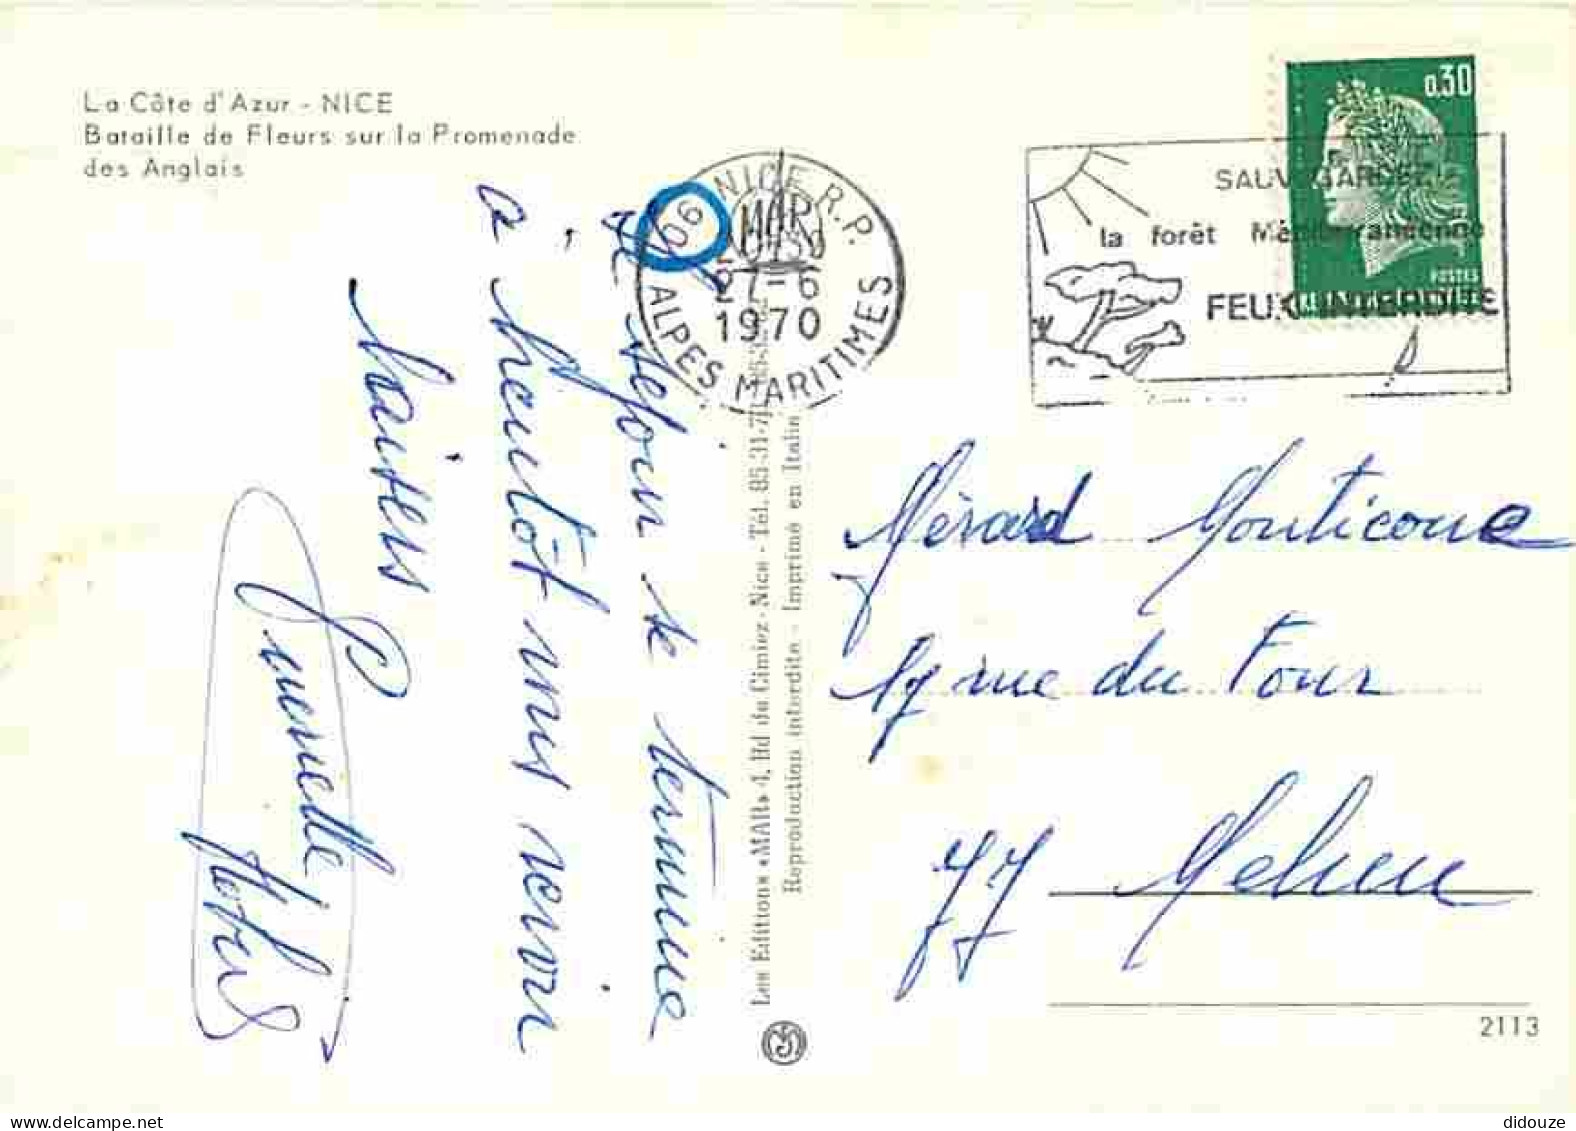 La Côte d'Azur - NICE
Bataille de Fleurs sur la Promenade
des Anglais
06 NICE R.P.
27-6
1970
ALPES MARITIMES
0,30
POSTES
SAUVEGARDEZ
la forêt Méditerranéenne
FEUX INTERDITS
séjour se termine
à bientôt
revoir
baisers
Les Editions «MAR» 4, Bd du Cimiez - Nice - Tél. 85-31-7
Reproduction interdite - Imprimé en Italie
rue du Four
77 Melun
2113
didouze